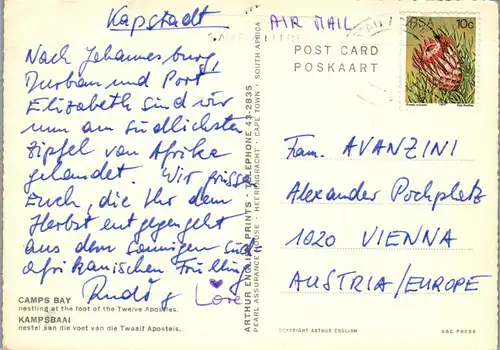 Kapstadt
Nach Johannesburg,
Durban und Port
Elizabeth sind wir
nun am südlichsten
Zipfel von Afrika
gelandet. Wir grüssen
Euch, die Ihr dem
Herbst entgegengeht
aus dem sonnigen süd-
afrikanischen Frühling
Rudi & Lore
CAMPS BAY
nestling at the foot of the Twelve Apostles.
KAMPSBAAI
nestel aan die voet van die Twaalf Apostels.
ARTHUR ENGLISH PRINTS · TELEPHONE 43-2835
PEARL ASSURANCE HOUSE · HEERENGRACHT · CAPE TOWN · SOUTH AFRICA
AIR MAIL
POST CARD
POSKAART
RSA 10c
Fam. AVANZINI
Alexander Pochplatz
1020 VIENNA
AUSTRIA/EUROPE
COPYRIGHT ARTHUR ENGLISH
ABC PRESS